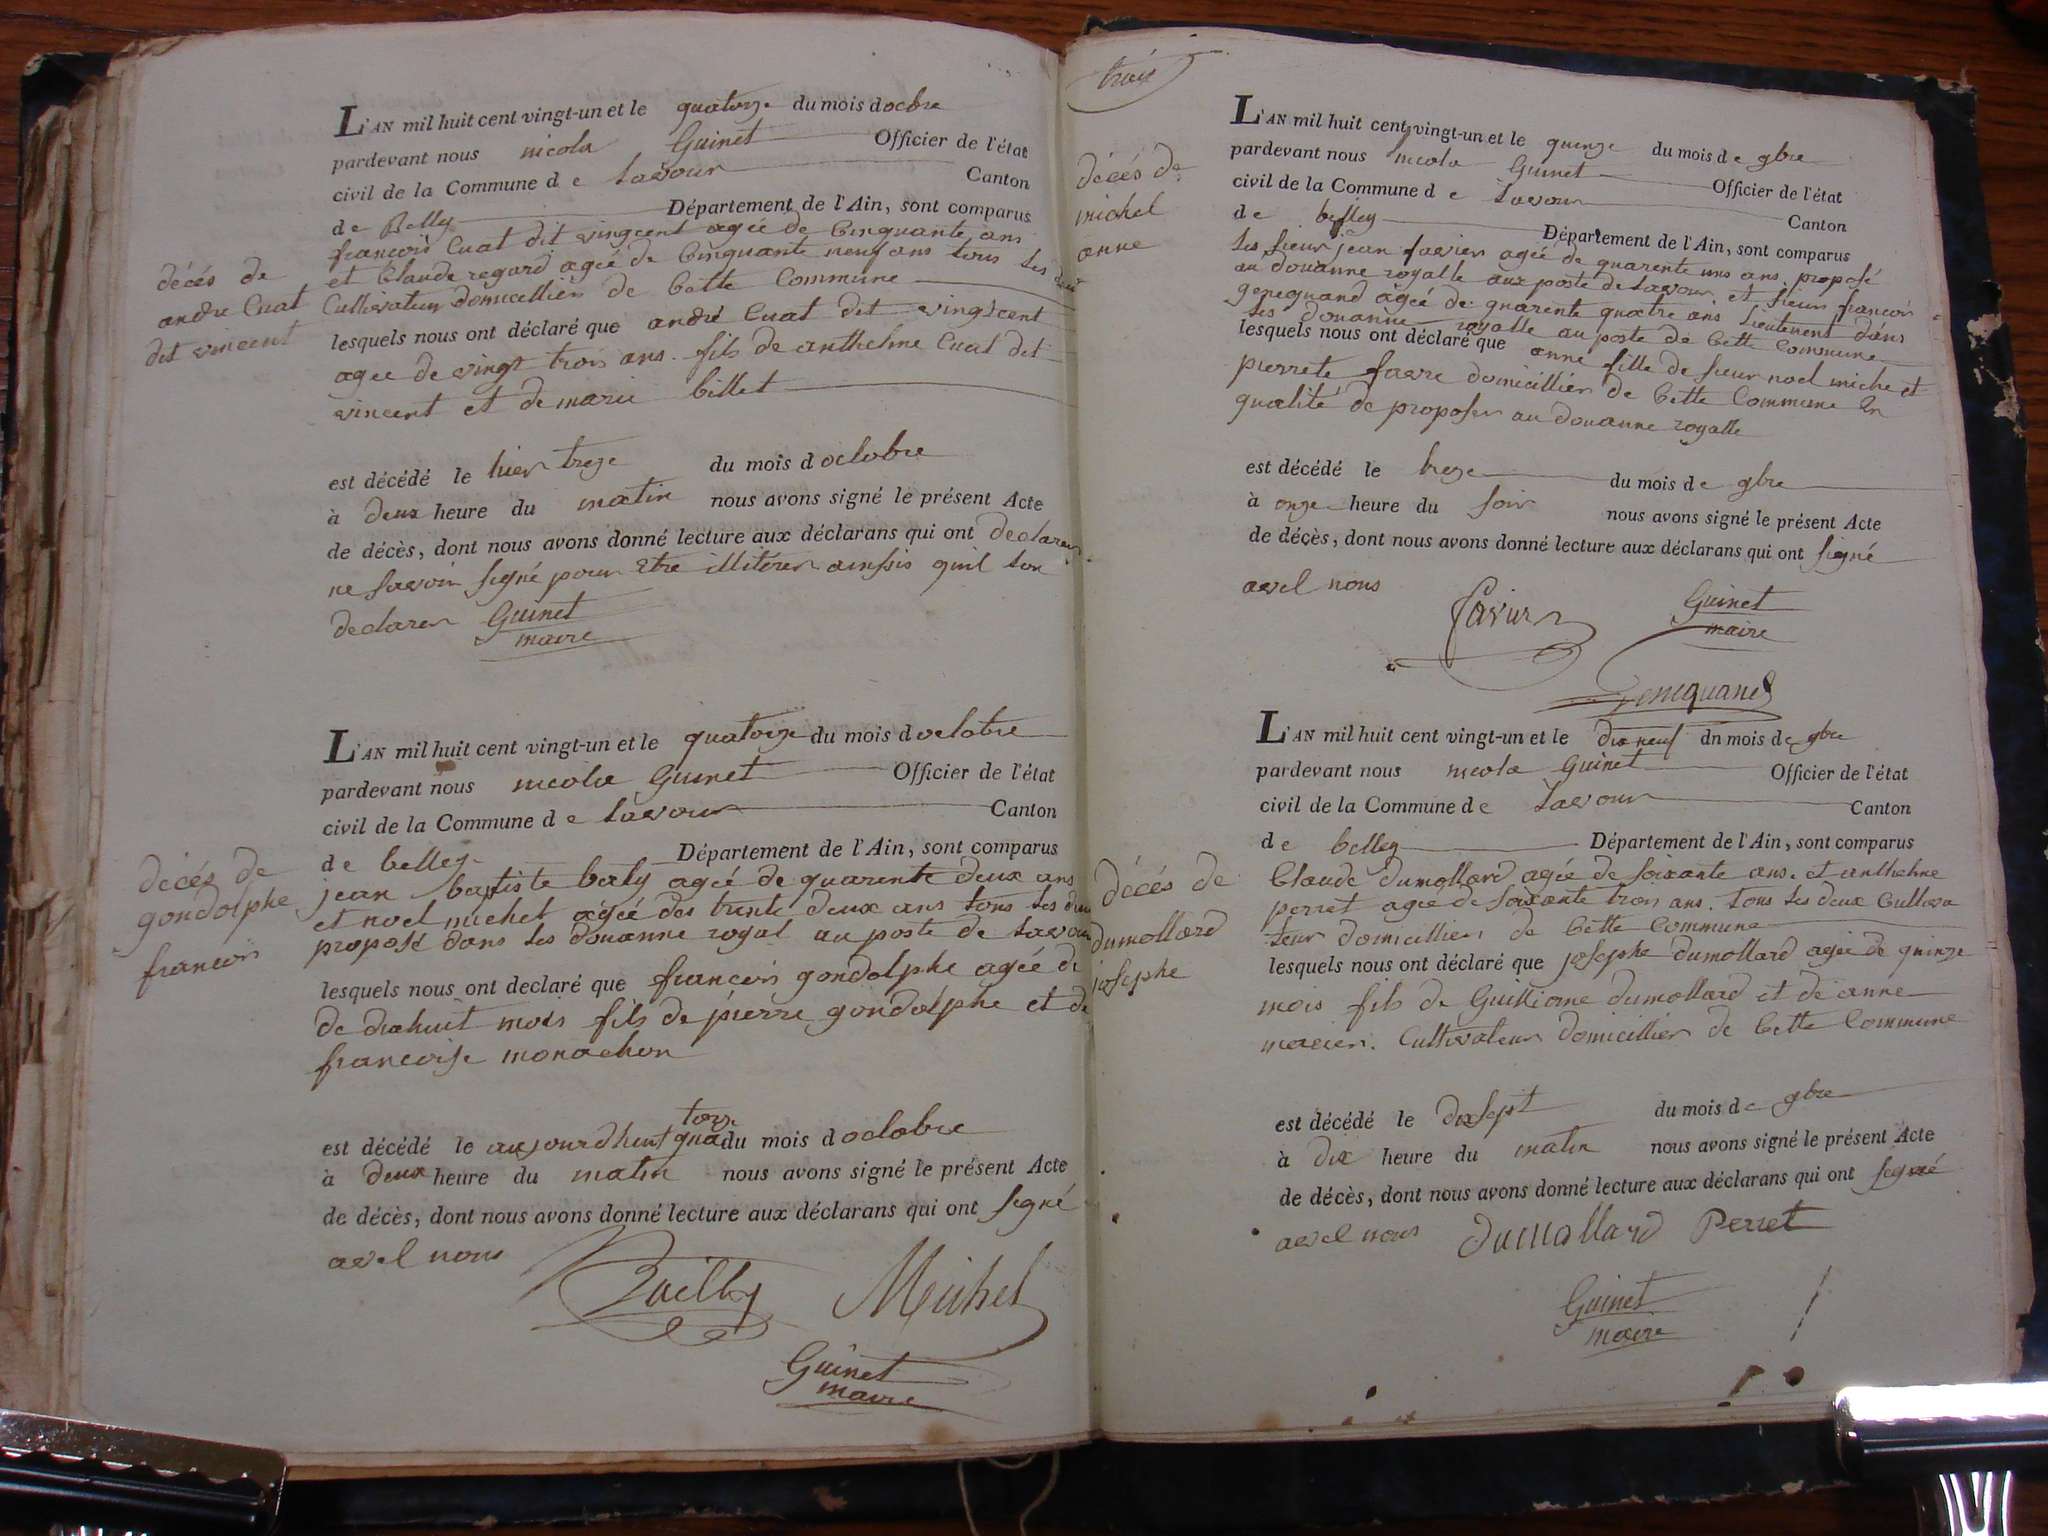 L'AN mil huit cent vingt-un et le quatorze du mois d octbre
pardevant nous nicola Guinet Officier de l'état
civil de la Commune d e Lavour Canton
de Belley Département de l'Ain, sont comparus
françois Cuat dit vingcent agée de Cinquante ans
et Claude regard agée de Cinquante neuf ans tous les deux
Cultivateur domicellier de Cette Commune
décés de
andre Cuat
dit vincent
lesquels nous ont déclaré que andré Cuat dit vingtcent
agee de vingt trois ans fils de anthelme Cuat dit
vincent et de marie billet
est décédé le hier treze du mois d octobre
à deux heure du matin nous avons signé le présent Acte
de décès, dont nous avons donné lecture aux déclarans qui ont declarer
ne savoir signé pour etre illiterer ainssis quil lon
declarer Guinet
maire
L'AN mil huit cent vingt-un et le quatorze du mois d octobre
pardevant nous nicola Guinet Officier de l'état
civil de la Commune d e Lavour Canton
de belley Département de l'Ain, sont comparus
jean baptiste baly agée de quarente deux ans
et noel michel agée des trente deux ans tous les deux
proposé dans les douanne royal au poste de Lavour
décés de
gondolphe
francois
lesquels nous ont declaré que francois gondolphe agée de
de dixhuit mois fils de pierre gondolphe et de
francoise monachon
torze
est décédé le aujourdhuit qua du mois d octobre
à deux heure du matin nous avons signé le présent Acte
de décès, dont nous avons donné lecture aux déclarans qui ont signé
avel nous
Bailly Michel
Guinet
maire
trois
L'AN mil huit cent vingt-un et le quinze du mois d e 9bre
pardevant nous nicola Guinet Officier de l'état
civil de la Commune d e Lavour Canton
de belley Département de l'Ain, sont comparus
décés de
michel
anne
les sieur jean favier agée de quarente uns ans proposé
au douanne royalle aux poste de Lavour et sieur francois
genequand agée de quarente quatre ans Lieutenent dans
les douanne royalle au poste de Cette Commune
lesquels nous ont déclaré que anne fille de sieur noel miche et
pierrete favre domicillier de Cette Commune En
qualité de proposer au douanne royalle
est décédé le treze du mois d e 9bre
à onze heure du soir nous avons signé le présent Acte
de décès, dont nous avons donné lecture aux déclarans qui ont signé
avel nous Favier Guinet
maire
Genequand
L'AN mil huit cent vingt-un et le dix neuf dn mois d e 9bre
pardevant nous nicola Guinet Officier de l'état
civil de la Commune d e Lavour Canton
de belley Département de l'Ain, sont comparus
décés de
dumollard
josephe
Claude dumollard agée de soixante ans. et anthelme
perret agée de soixante trois ans. tous les deux Cultiva
teur domicillier de Cette Commune
lesquels nous ont déclaré que josephe dumollard agée de quinze
mois fils de Guilliome dumollard et de anne
mercier. Cultivateur domicillier de Cette Commune
est décédé le dixsept du mois d e 9bre
à dix heure du matin nous avons signé le présent Acte
de décès, dont nous avons donné lecture aux déclarans qui ont signé
avel nous dumollard Perret
Guinet
maire